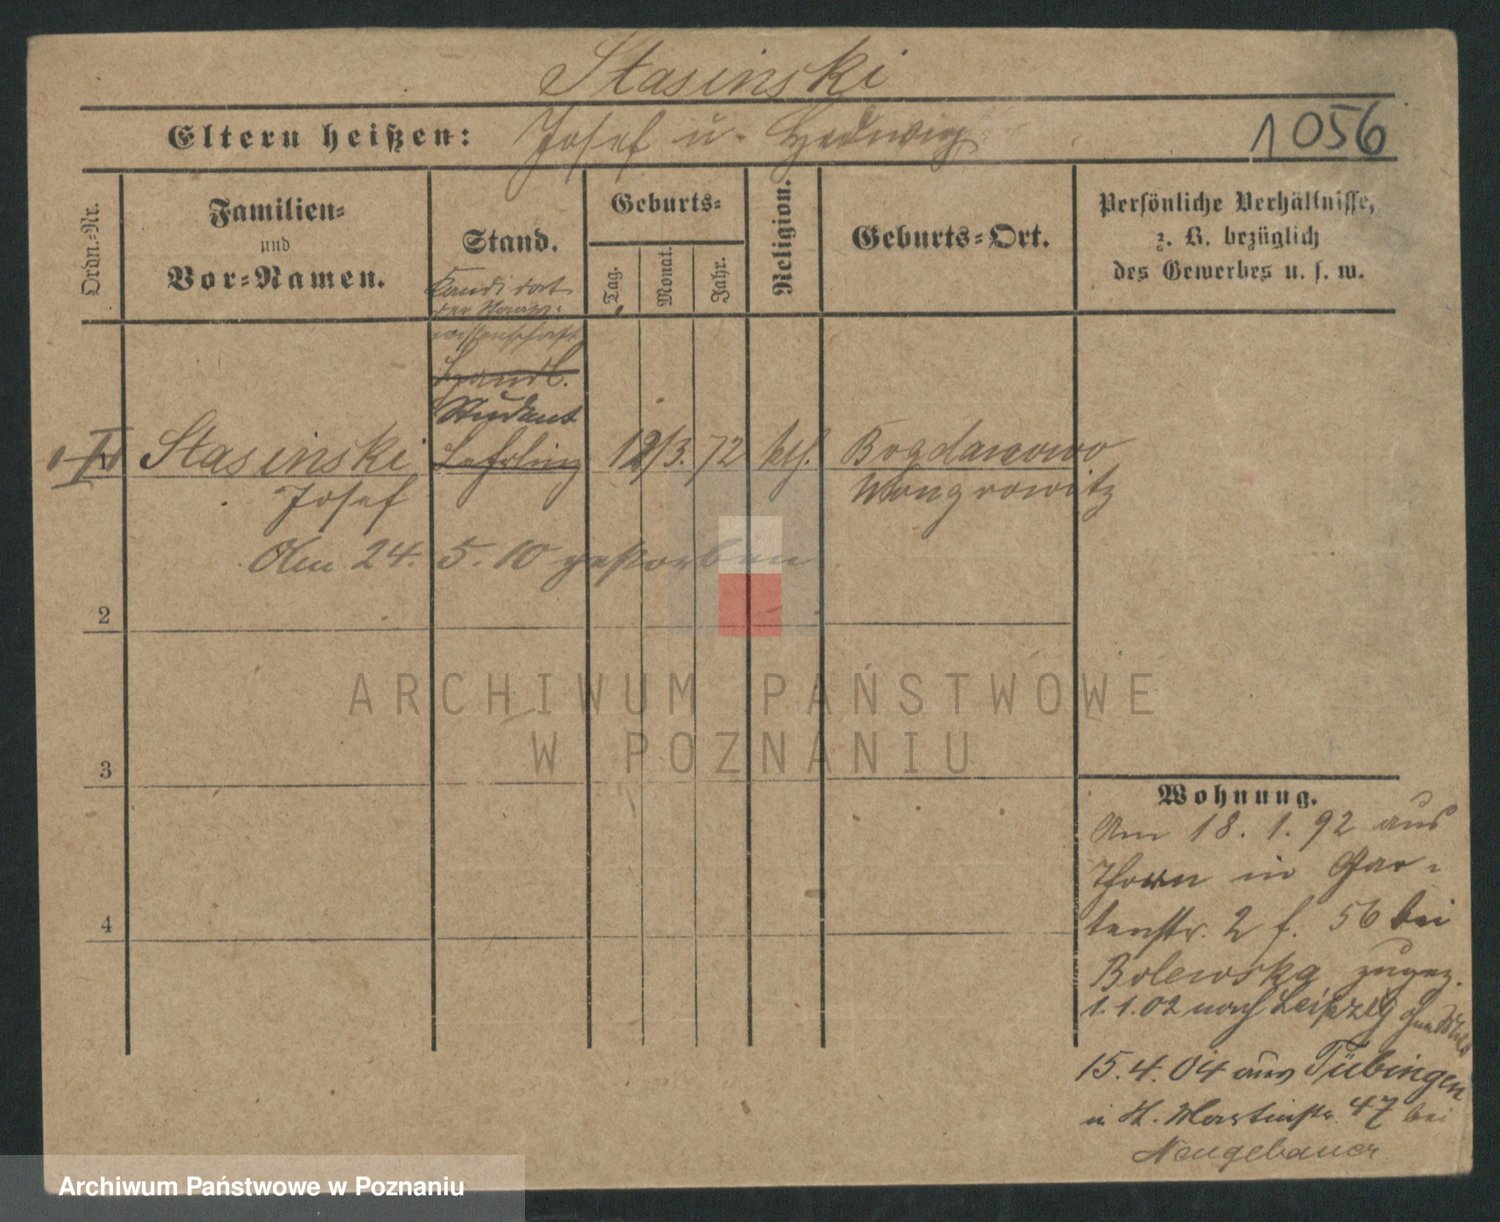 Stasinski
Eltern heißen: Josef u. Hedwig
1056
Ordn.-Nr.
Familien-
und
Vor-Namen.
Stand.
Geburts-
Tag.
Monat.
Jahr.
Religion.
Geburts-Ort.
Persönliche Verhältnisse,
z. B. bezüglich
des Gewerbes u. s. w.
Kandidat
der
wissenschaft
Handl.
Student
1 Stasinski Lehrling 12/3. 72 kth. Bogdanowo
Josef Wongrowitz
Am 24. 5. 10 gestorben
2
3
4
ARCHIWUM PAŃSTWOWE
W POZNANIU
Wohnung.
Am 18. 1. 92 aus
Thorn in Gar-
tenstr. 2 f. 56 bei
Bolewska zugez.
1.1.02 nach Leipzig
15.4.04 aus Tübingen
in St. Martinstr. 47 bei
Neugebauer
Archiwum Państwowe w Poznaniu